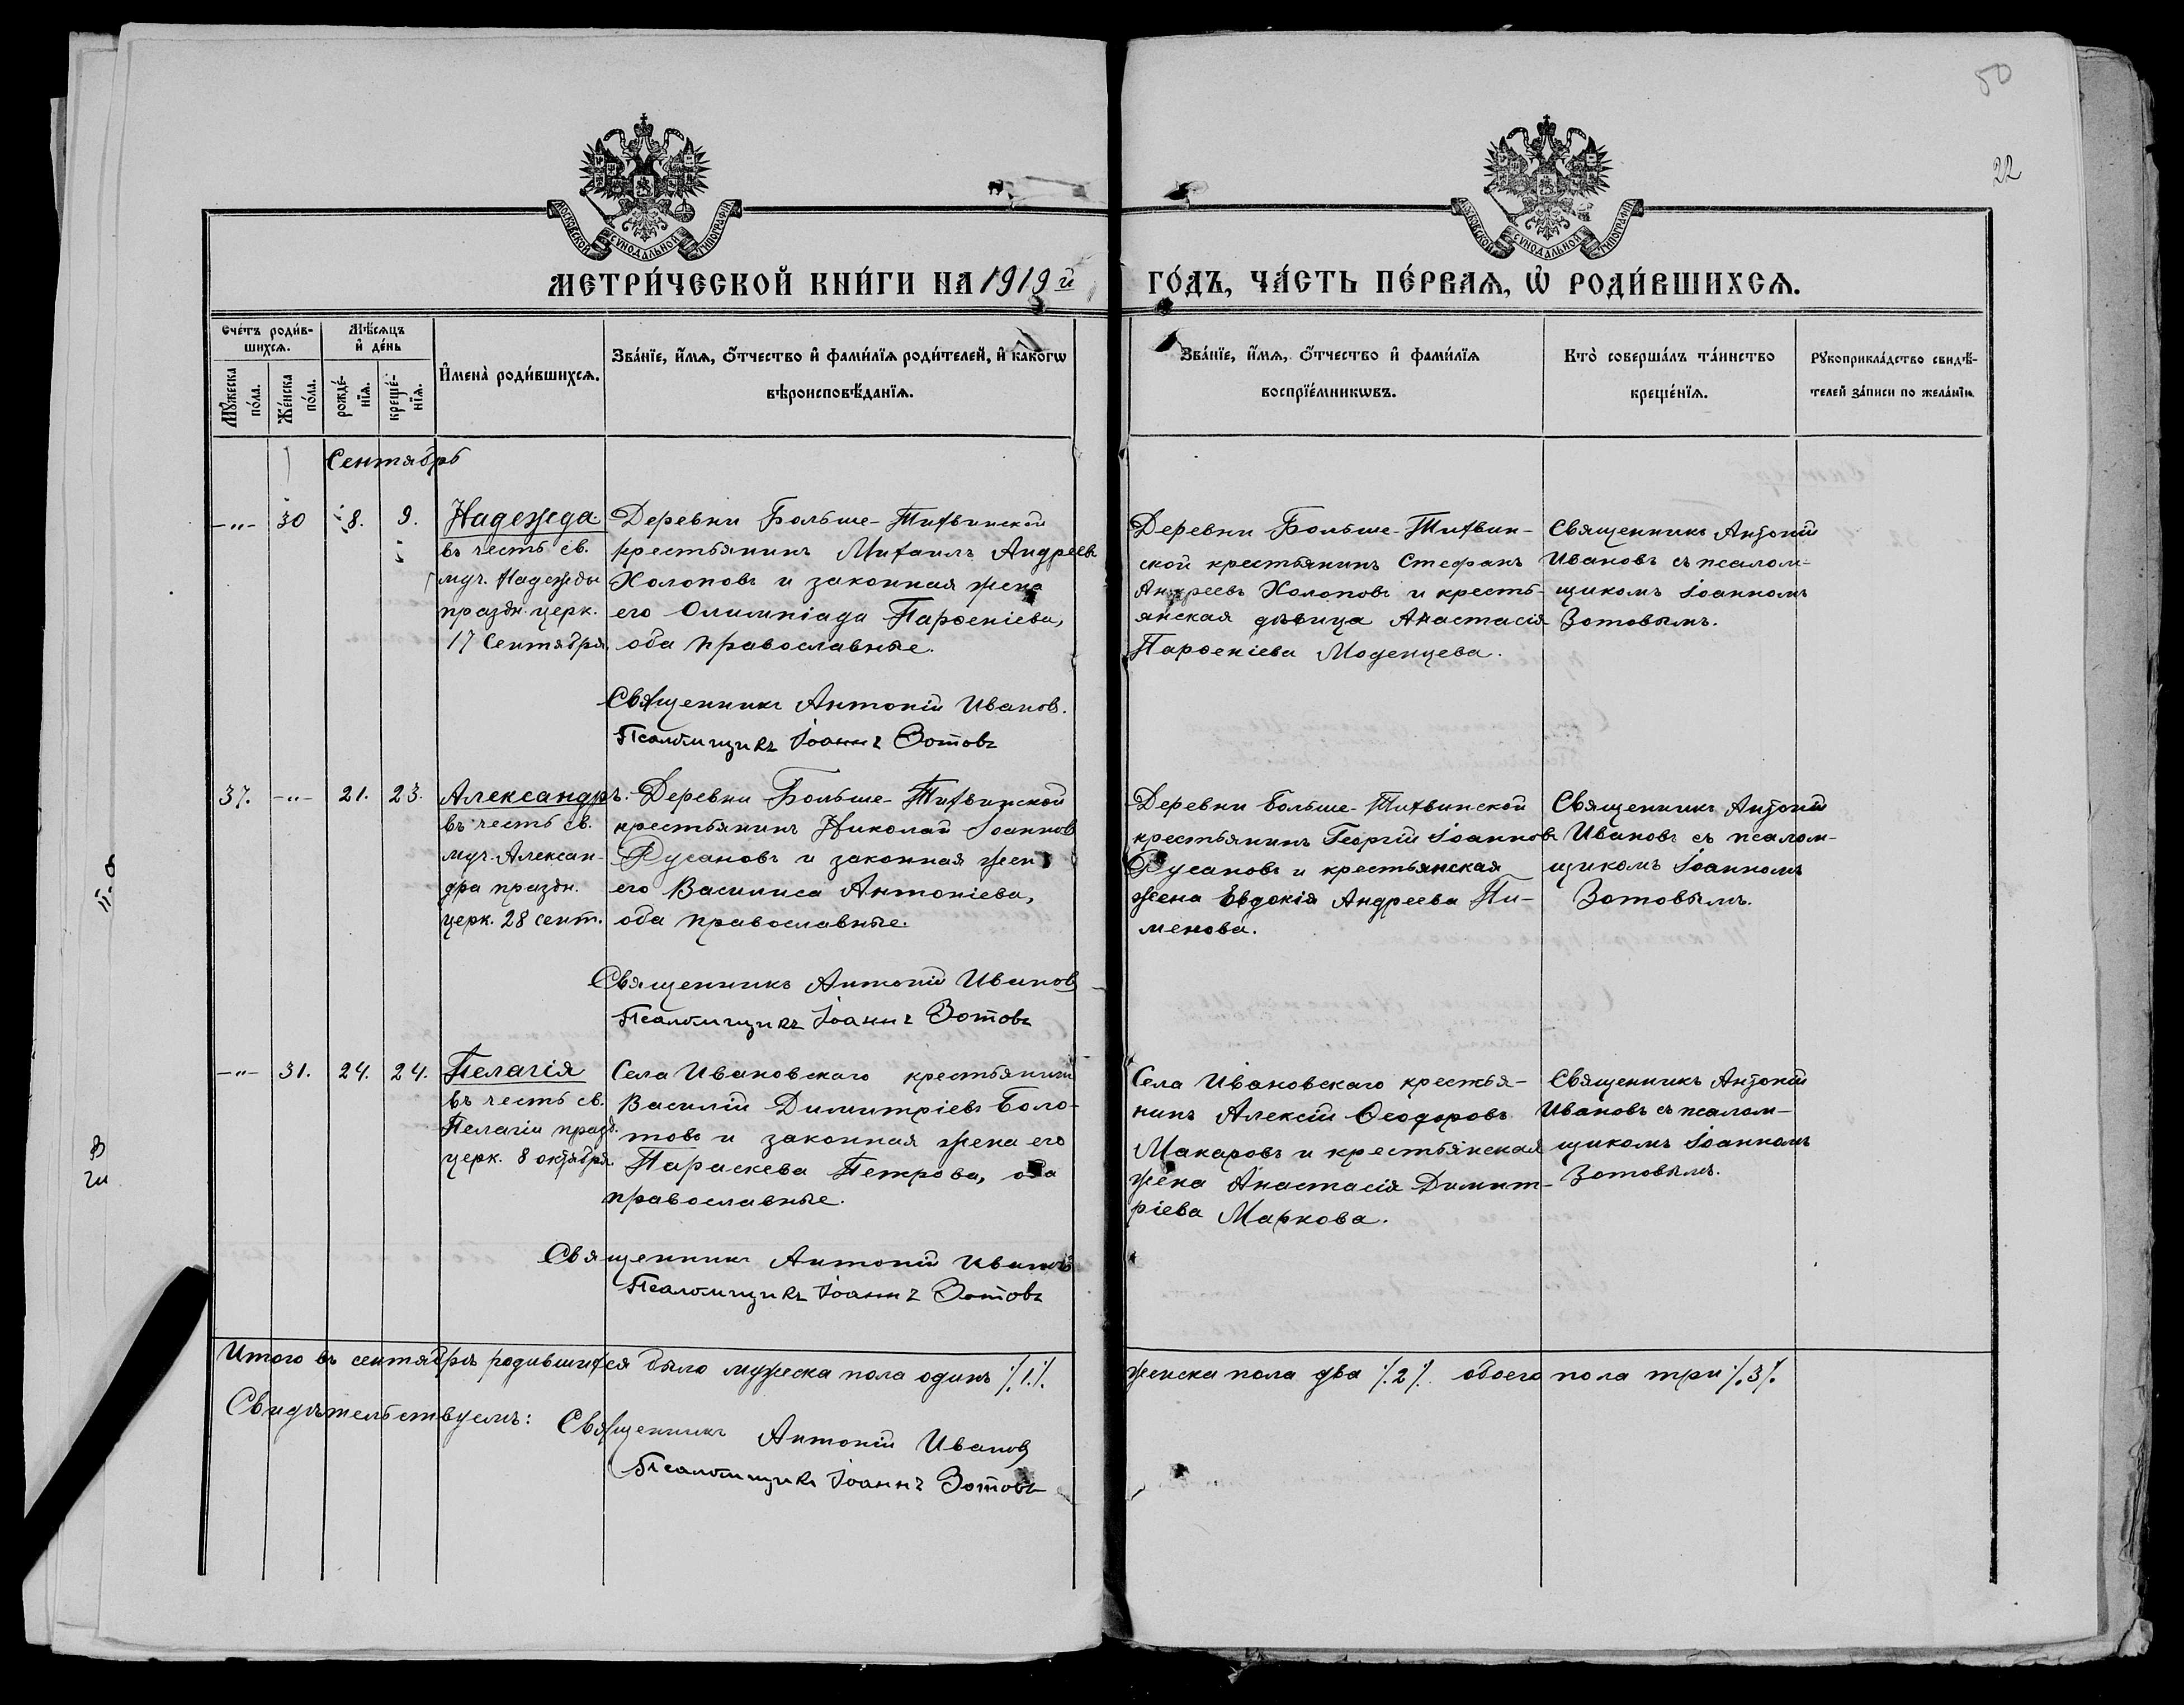 50
22
МОСКОВСКОЙ СѴНОДАЛЬНОЙ ТИПОГРАФІИ
МОСКОВСКОЙ СѴНОДАЛЬНОЙ ТИПОГРАФІИ
МЕТРИ́ЧЕСКОЙ КНИ́ГИ НА 1919й
ГО́ДЪ, ЧА́СТЬ ПЕ́РВАѦ, Ѡ҆ РОДИ́ВШИХСѦ.
Сче́тъ роди́в-
шихсѧ.
Мѣ́сѧцъ
и҆ де́нь
Мꙋ́жеска
по́ла.
Же́нска
по́ла.
рожде́-
нїѧ.
креще́-
нїѧ.
И҆мена̀ роди́вшихсѧ.
Зва́нїе, и҆́мѧ, о҆́тчество и҆ фами́лїѧ роди́телей, и҆ како́гѡ
вѣроисповѣ́данїѧ.
Зва́нїе, и҆́мѧ, о҆́тчество и҆ фами́лїѧ
воспрїе́мникѡвъ.
Кто̀ соверша́лъ та́инство
креще́нїѧ.
Рꙋкоприкла́дство свидѣ́-
телей за́писи по жела́нїю.
Сентябрь
-"- 30 8. 9.
Надежда.
въ честь св.
муч. Надежды
праздн. церк.
17 Сентября.
Деревни Больше-Тихвинской
крестьянинъ Михаилъ Андреевъ
Холоповъ и законная жена
его Олимпіада Парѳеніева,
оба православные.
Священникъ Антоній Иванов.
Псаломщикъ Іоаннъ Зотовъ
Деревни Больше-Тихвин-
ской крестьянинъ Стефанъ
Андреевъ Холоповъ и кресть-
янская дѣвица Анастасія
Парѳеніева Моденцева.
Священникъ Антоній
Ивановъ съ псалом-
щикомъ Іоанномъ
Зотовымъ.
37. -"- 21. 23.
Александръ.
въ честь св.
муч. Алексан-
дра праздн.
церк. 28 сент.
Деревни Больше-Тихвинской
крестьянинъ Николай Іоаннов
Русановъ и законная жена
его Василиса Антоніева,
оба православные.
Священникъ Антоній Иванов
Псаломщикъ Іоаннъ Зотовъ
Деревни Больше-Тихвинской
крестьянинъ Георгій Іоанновъ
Русановъ и крестьянская
жена Евдокія Андреева Пи-
менова.
Священникъ Антоній
Ивановъ съ псалом-
щикомъ Іоанномъ
Зотовымъ.
-"- 31. 24. 24.
Пелагія
въ честь св.
Пелагіи празд.
церк. 8 октября.
Села Ивановскаго крестьянинъ
Василій Димитріевъ Боло-
товъ и законная жена его
Параскева Петрова, оба
православные.
Священникъ Антоній Иванов
Псаломщикъ Іоаннъ Зотовъ
Села Ивановскаго крестья-
нинъ Алексій Ѳеодоровъ
Макаровъ и крестьянская
жена Анастасія Димит-
ріева Маркова.
Священникъ Антоній
Ивановъ съ псалом-
щикомъ Іоанномъ
Зотовымъ.
Итого въ сентябрѣ родившихся было мужеска пола одинъ /.1./. женска пола два /.2/. обоего пола три /.3/.
Свидѣтельствуемъ:
Священникъ Антоній Иванов
Псаломщикъ Іоаннъ Зотовъ